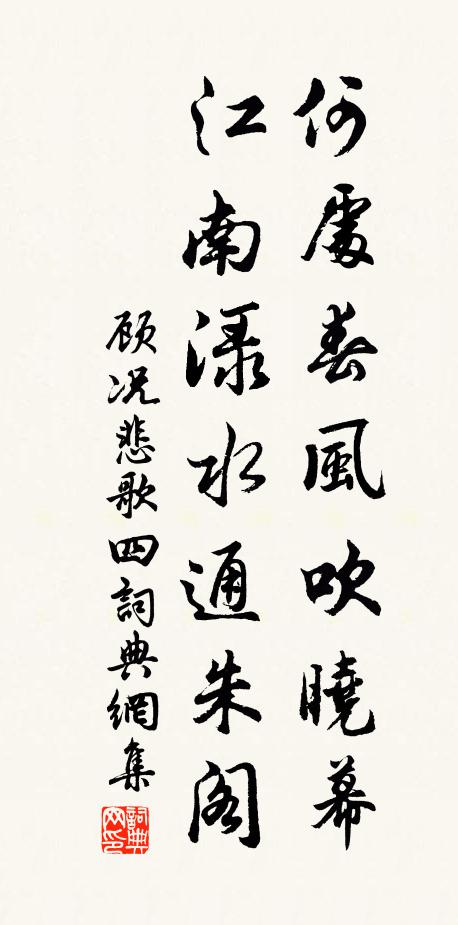 何處春風吹曉幕
江南渌水通朱閣
顧况悲歌四詞典網集
詞典
网印